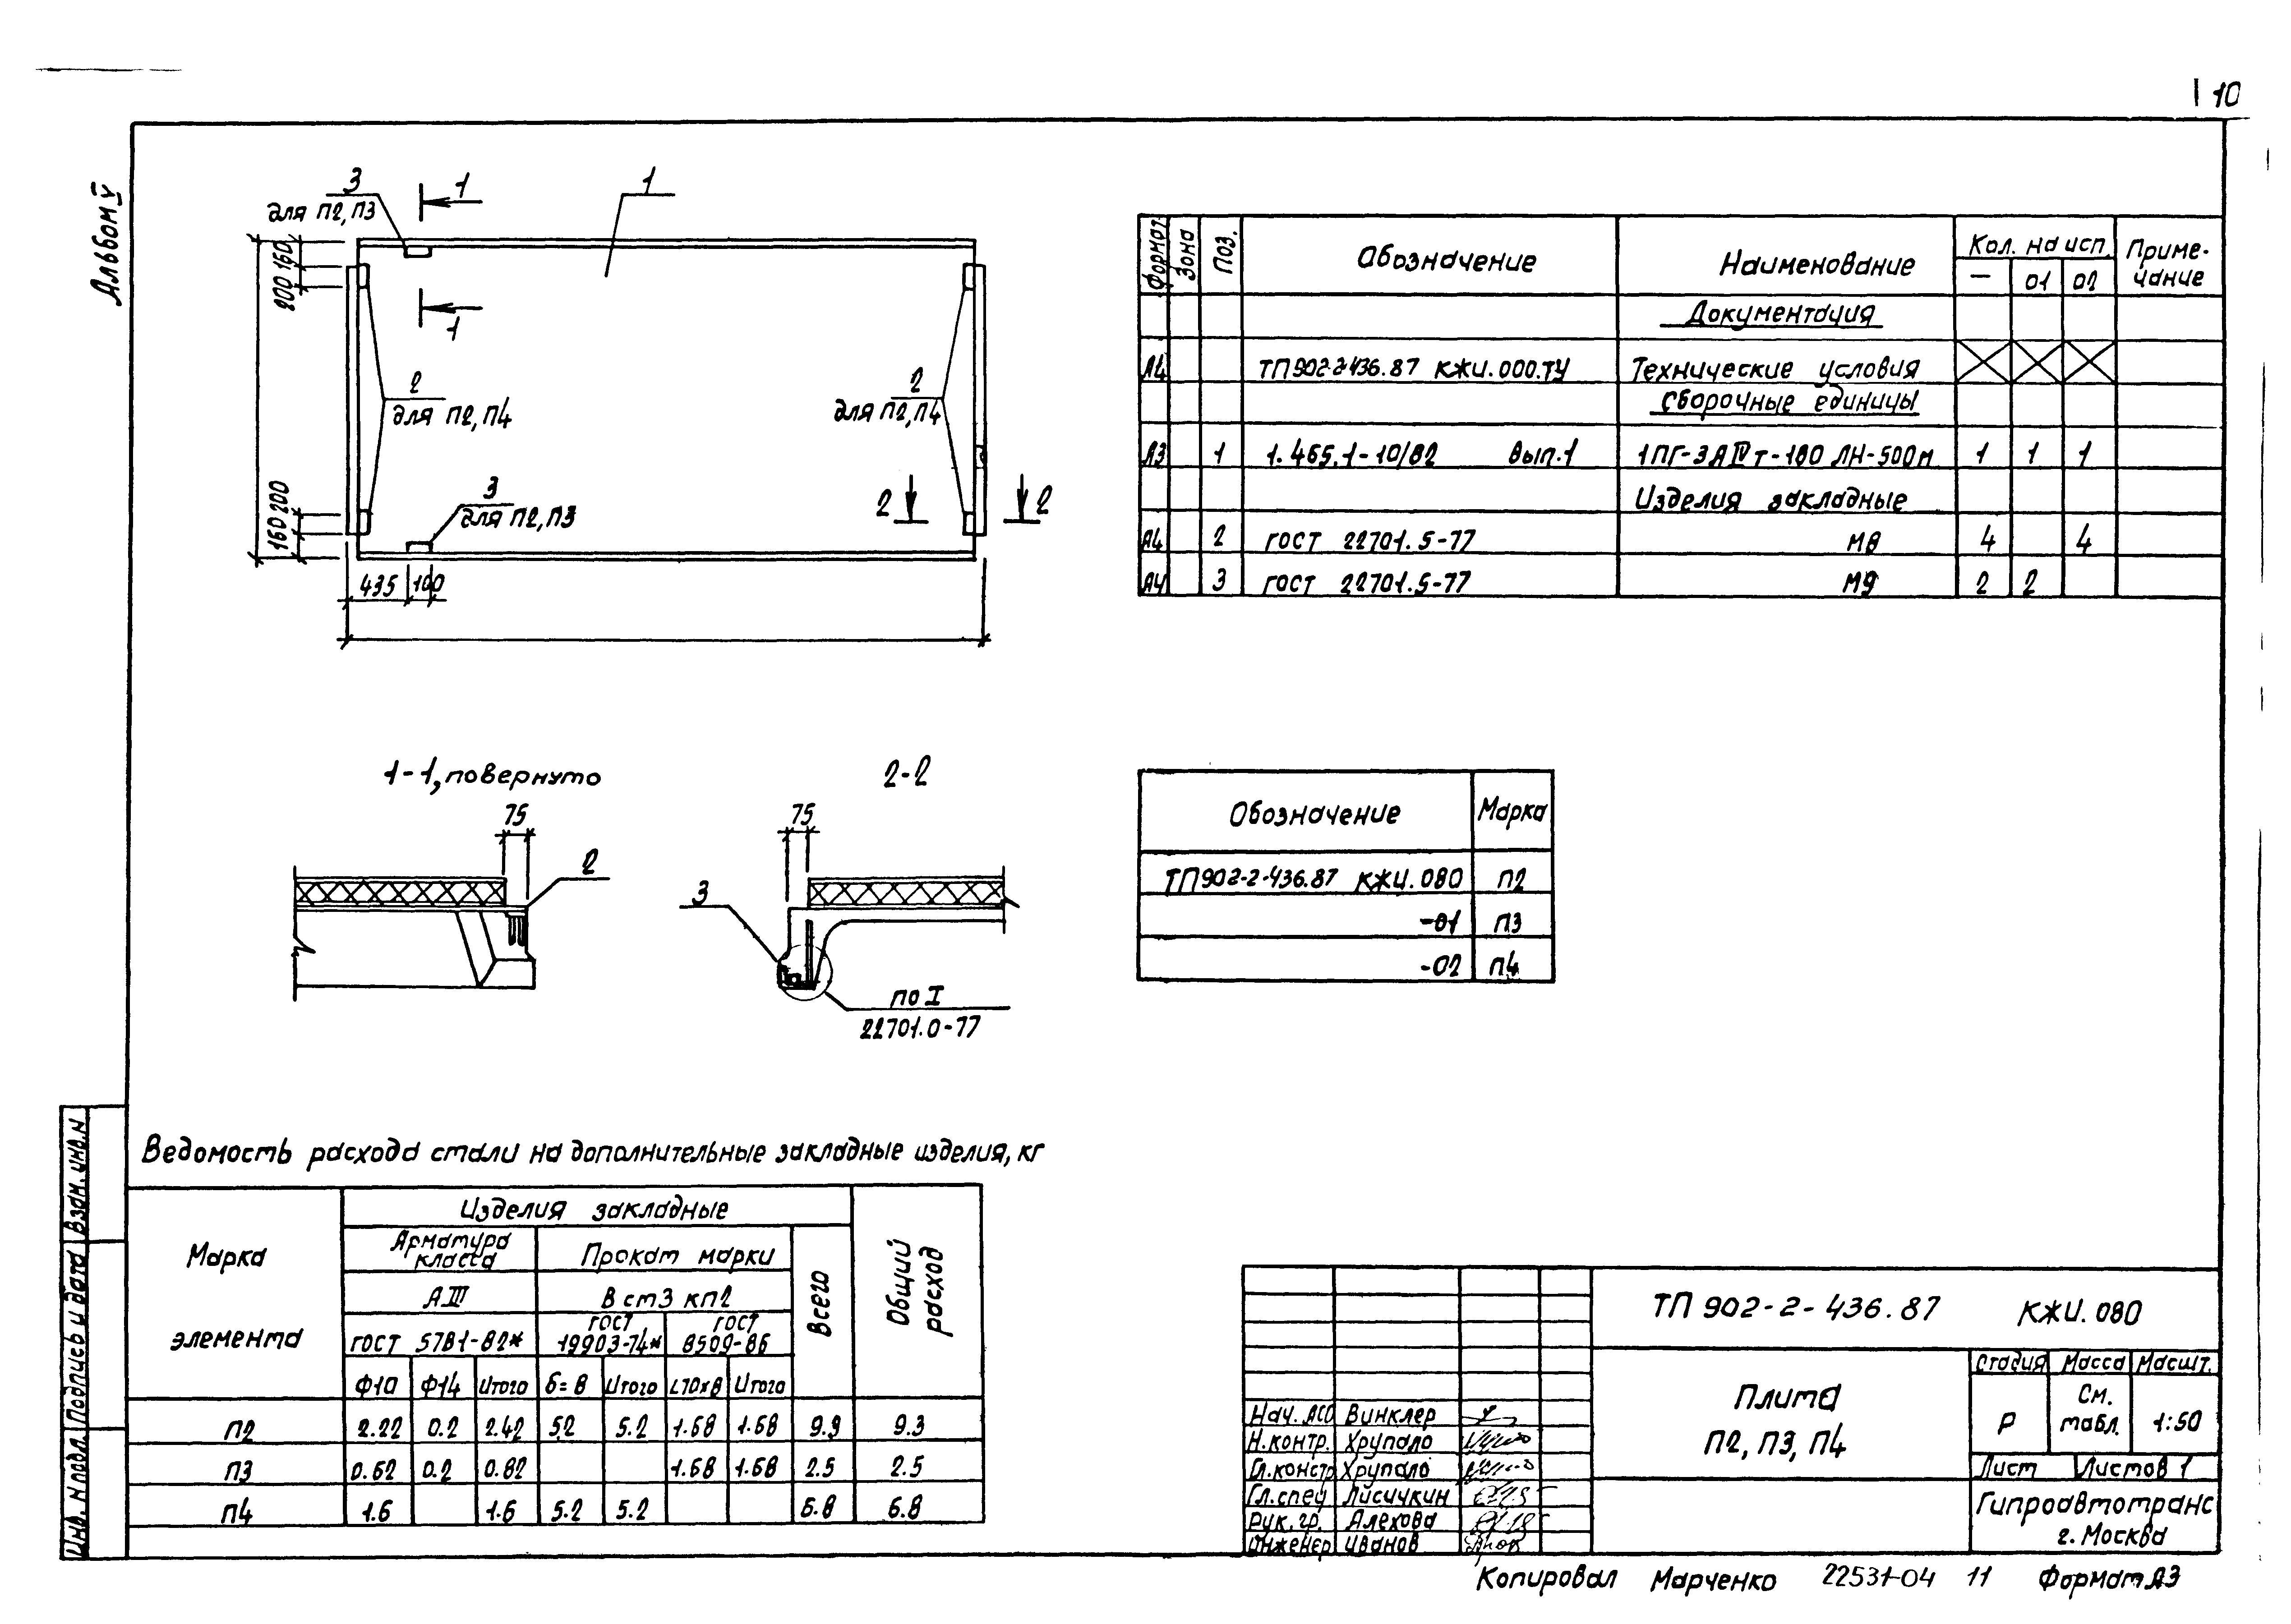 10
Альбом V
3
для П2, П3
1
1
160
200
1
2
для П2, П4
2
для П2, П4
3
для П2, П3
2
2
200
160
435
100
Формат
Зона
Поз.
Обозначение
Наименование
Кол. на исп.
—
01
02
Приме-
чание
Документация
А4
ТП902-2-436.87 КЖИ.000.ТУ
Технические условия
Сборочные единицы
А3 1 1.465.1-10/82 Вып.1 1ПГ-3АIVт-180 ЛН-500м 1 1 1
Изделия закладные
А4 2 ГОСТ 22701.5-77 М8 4 4
А4 3 ГОСТ 22701.5-77 М9 2 2
1-1, повернуто
75
2
2-2
75
3
по I
22701.0-77
Обозначение Марка
ТП902-2-436.87 КЖИ.080 П2
-01 П3
-02 П4
Ведомость расхода стали на дополнительные закладные изделия, кг
Марка
элемента
Изделия закладные
Арматура
класса
Прокат марки
Всего
Общий
расход
А III
В ст3 кп2
ГОСТ 5781-82*
ГОСТ
19903-74*
ГОСТ
8509-86
Ф10 Ф14 Итого δ=8 Итого L70х8 Итого
П2 2.22 0.2 2.42 5.2 5.2 1.68 1.68 9.9 9.3
П3 0.62 0.2 0.82 1.68 1.68 2.5 2.5
П4 1.6 1.6 5.2 5.2 6.8 6.8
Инв. N подл.
Подпись и дата
Взам. инв. N
ТП 902-2-436.87 КЖИ.080
Плита
П2, П3, П4
Стадия Масса Масшт.
Р
См.
табл.
1:50
Лист Листов 1
Гипроавтотранс
г. Москва
Нач. АСО Винклер
Н.контр. Хрупало
Гл.констр Хрупало
Гл.спец Лисичкин
Рук. гр. Алехова
Инженер Иванов
Копировал Марченко 22531-04 11 Формат А3